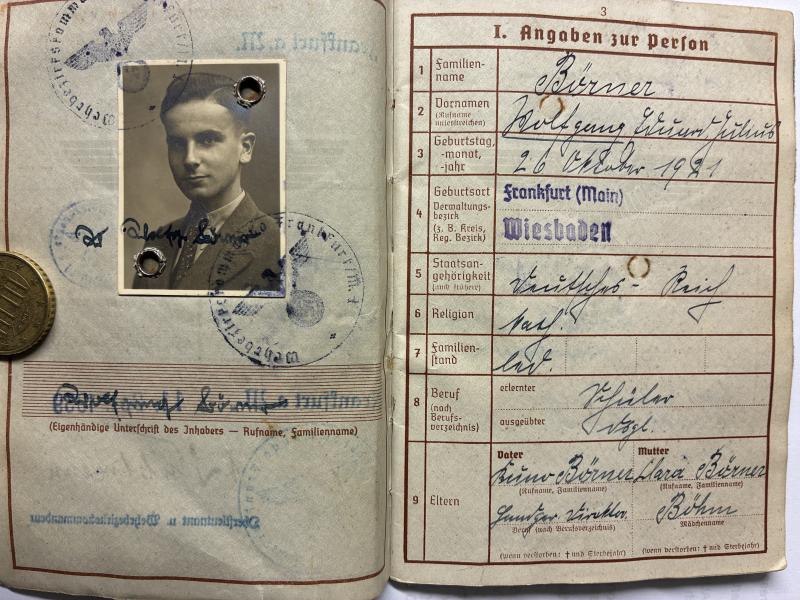 Wehrbezirkskommando
Frankfurt/M. 1
Wehrbezirkskommando
Börner
(Eigenhändige Unterschrift des Inhabers — Rufname, Familienname)
3
I. Angaben zur Person
1 Familien-
name
Börner
2 Vornamen
(Rufname
unterstreichen)
Wolfgang Eduard Julius
3 Geburtstag,
-monat,
-jahr
26 Oktober 1921
4 Geburtsort
Verwaltungs-
bezirk
(z. B. Kreis,
Reg. Bezirk)
Frankfurt (Main)
Wiesbaden
5 Staatsan-
gehörigkeit
(auch frühere)
Deutsches - Reich
6 Religion
Kath.
7 Familien-
stand
led.
8 Beruf
(nach
Berufs-
verzeichnis)
erlernter
Schüler
ausgeübter
dsgl.
9 Eltern
Vater
Kuno Börner
(Rufname, Familienname)
Direktor
Beruf (nach Berufsverzeichnis)
(wenn verstorben: † und Sterbejahr)
Mutter
Clara Börner
(Rufname, Familienname)
Böhm
Mädchenname
(wenn verstorben: † und Sterbejahr)